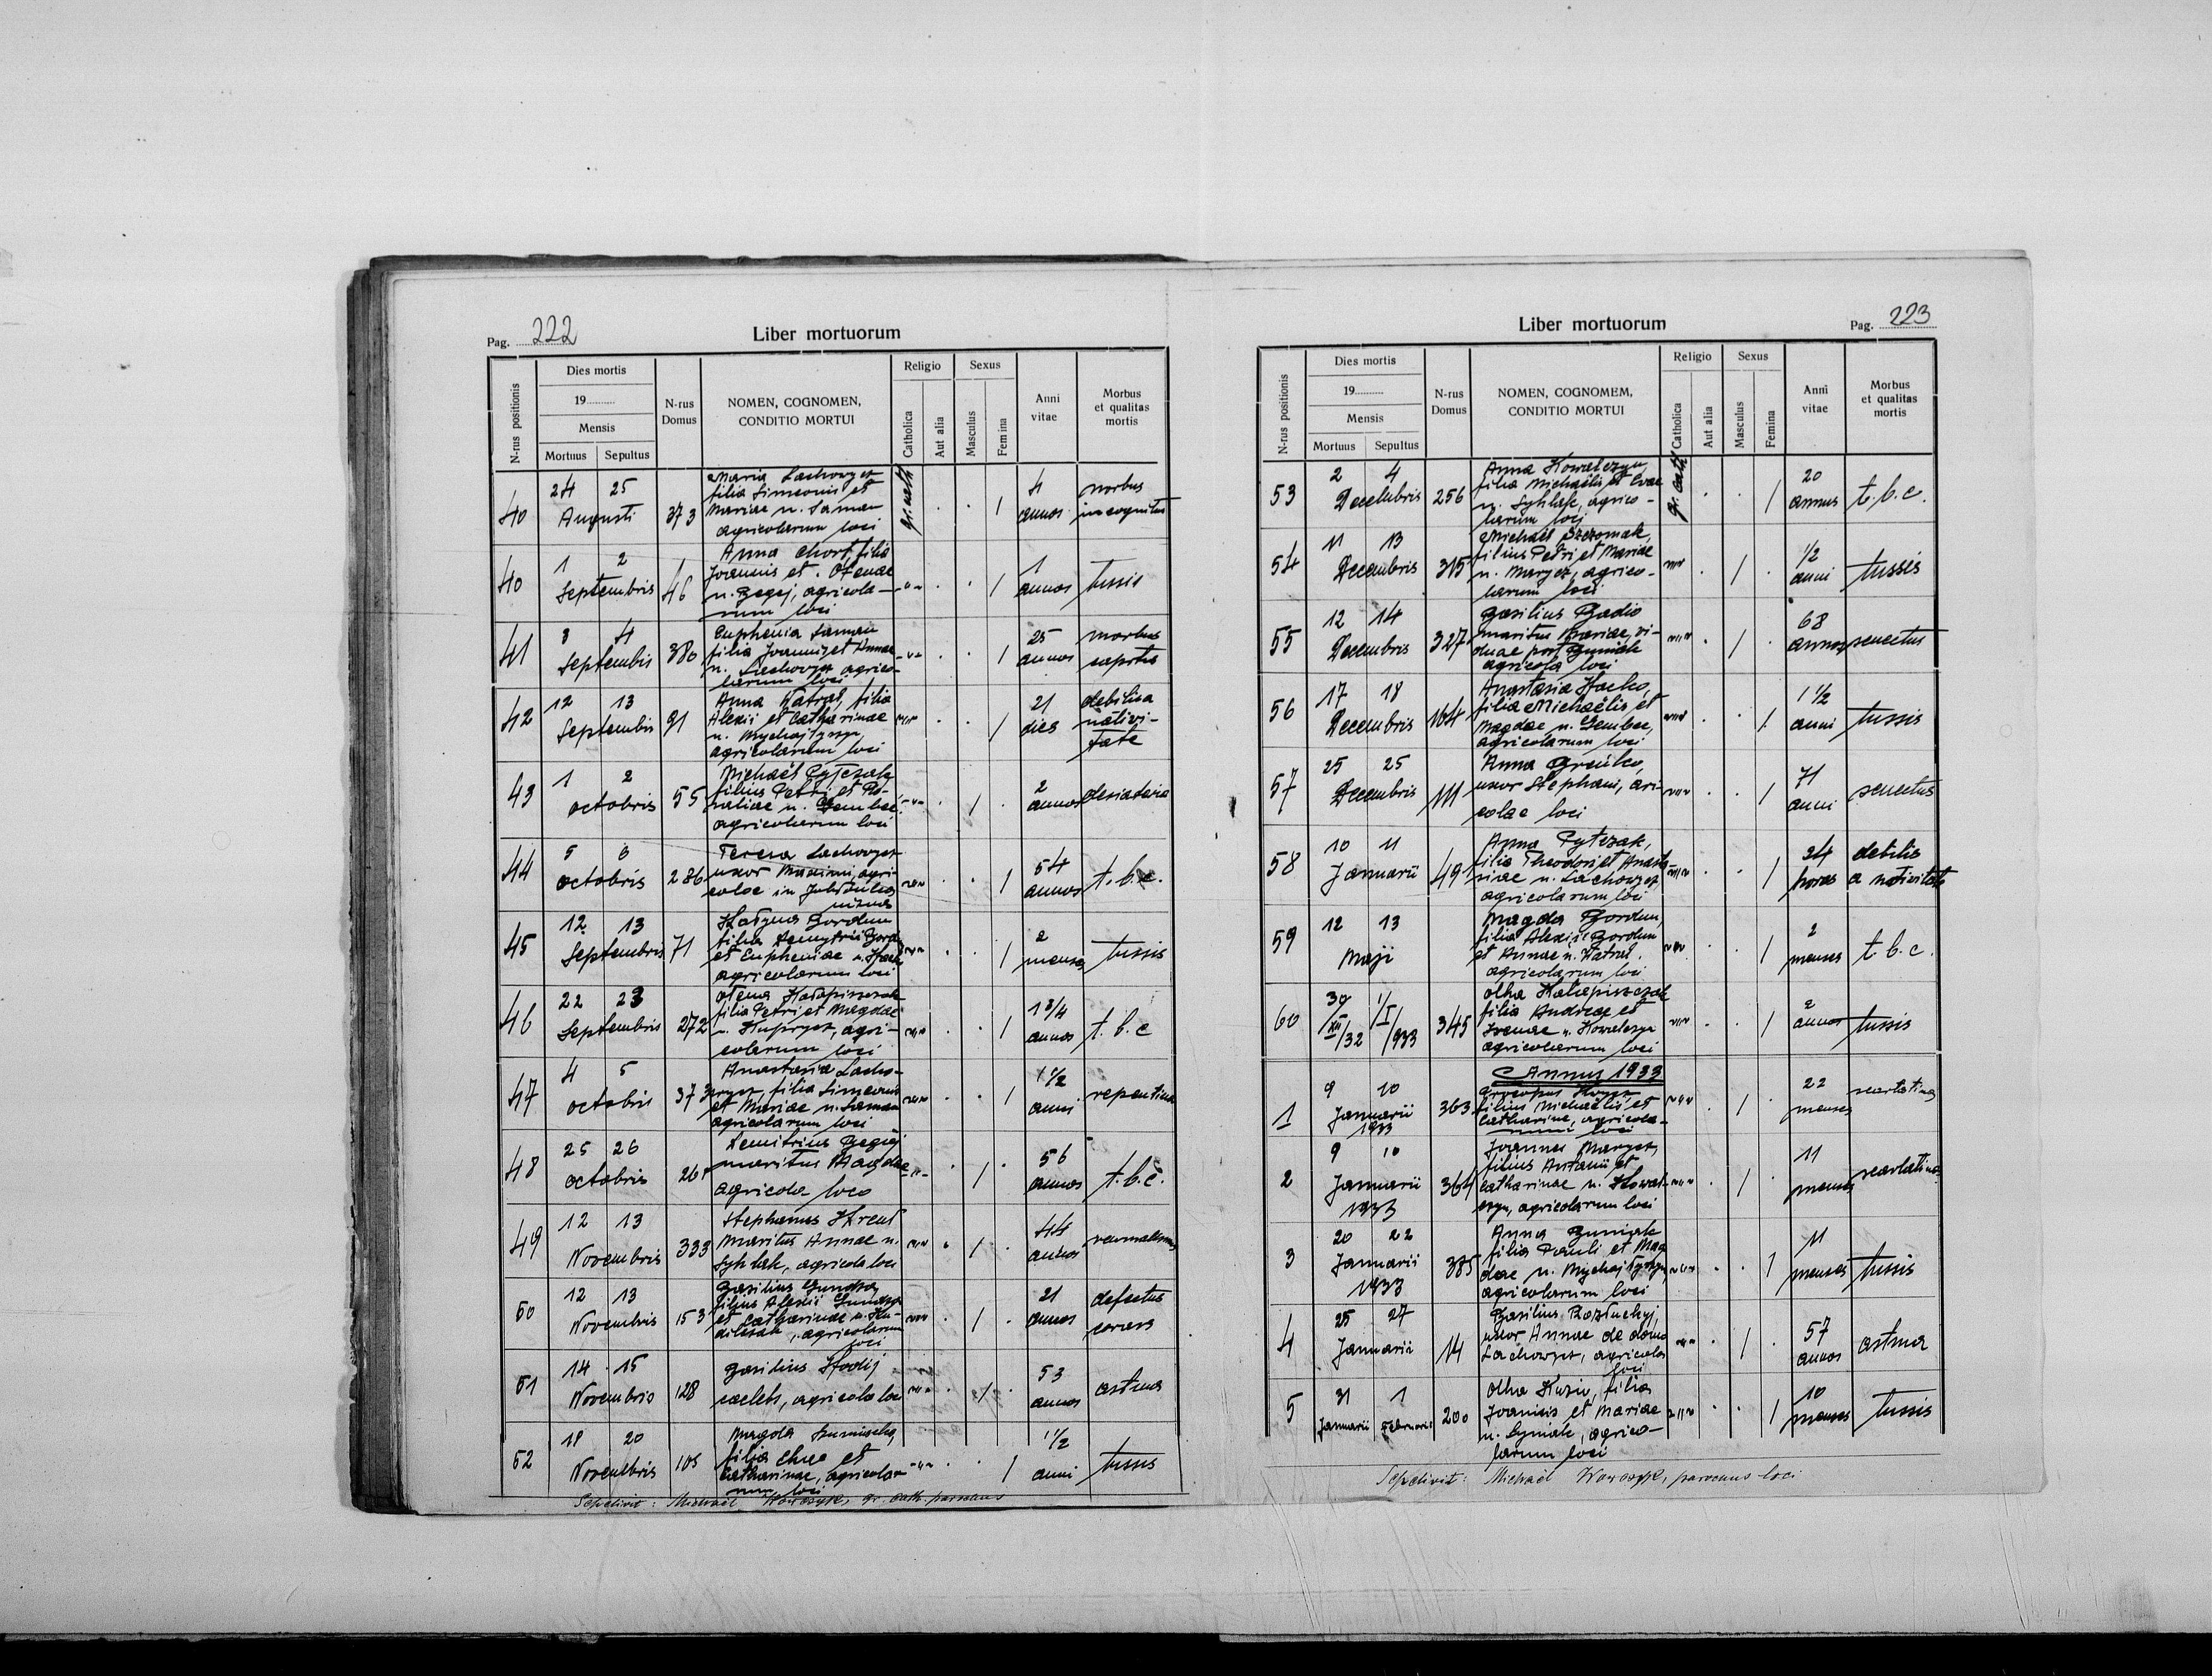 Pag. 222
Liber mortuorum
N-rus positionis
Dies mortis
19
Mensis
Mortuus Sepultus
N-rus Domus
NOMEN, COGNOMEN,
CONDITIO MORTUI
Religio
Catholica
Aut alia
Sexus
Masculus
Femina
Anni
vitae
Morbus
et qualitas
mortis
40 24 25 Augusti 373
Maria Lachowycz
filia Simeonis et
Mariae n. Saman
agricolarum loci
gr. cath / 4 annos morbus incognitus
40 1 2 Septembris 46
Anna Chort, filia
Joannis et Olenae
n. Begej, agricola-
rum loci
/ 1 annos tussis
41 3 4 Septembris 380
Euphenia Saman
filia Joannis et Annae
n. Lachowycz agrico-
larum loci
/ 25 annos morbus
42 12 13 Septembris 91
Anna Watral, filia
Alexii et Catharinae
n. Mychajłyszyn,
agricolarum loci
/ 21 dies debilis a nativi-
tate
43 1 2 octobris 55
Michaël Pytczak
filius Petri et Ro-
zaliae n. Dembec
agricolarum loci
/ 2 annos
44 5 6 octobris 286
Teresa Lachowycz
uxor Maximi, agri-
colae in
/ 54 annos t.b.c.
45 12 13 Septembris 71
Hałyna Bordun
filia Demytrii Bord.
et Eupheniae n.
agricolarum loci
/ 2 menses tussis
46 22 23 Septembris 272
Olena Hałapiszczak
filia Petri et Magdae
n. Kuprycz, agri-
colarum loci
/ 1 3/4 annos t.b.c
47 4 5 octobris 373
Anastasia Lacho-
wycz, filia Simeonis
et Mariae n. Saman
agricolarum loci
/ 1 1/2 anni repentina
48 25 26 octobris 265
Demitrius Begej
maritus Magdae
agricola loco
/ 56 annos t.b.c.
49 12 13 Novembris 333
Stephanus
Maritus Annae n.
Syhlak, agricola loci
/ 44 annos
50 12 13 Novembris 153
Basilius
filius Alexii
et Catharinae n.
agricolarum
loci
/ 21 annos defectus
51 14 15 Novembris 128
Basilius
caelebs, agricola loci
/ 53 annos astma
52 18 20 Novembris 105
Magda
filia et
Catharinae, agricola-
rum loci
/ 1 1/2 anni tussis
Sepelivit: Michaël Worczyk, gr. cath. parochus
Liber mortuorum
Pag. 223
N-rus positionis
Dies mortis
19
Mensis
Mortuus Sepultus
N-rus
Domus
NOMEN, COGNOMEM,
CONDITIO MORTUI
Religio
Catholica
Aut alia
Sexus
Masculus
Femina
Anni
vitae
Morbus
et qualitas
mortis
53 2 4 Decembris 256
Anna Kowalczyn,
filia Michaëlis et Evae
n. Syhlak, agrico-
larum loci
gr. cath / 20 annus t.b.c.
54 11 13 Decembris 315
Michaël Szczomak,
filius Petri et Mariae
n. Marycz, agrico-
larum loci
/ 1/2 anni tussis
55 12 14 Decembris 327
Basilius Badio
maritus Mariae, vi-
duae post Buniak
agricola loci
/ 68 annos senectus
56 17 18 Decembris 164
Anastasia Hocko,
filia Michaëlis et
Magdae n. Dembec,
agricolarum loci
/ 1 1/2 anni tussis
57 25 25 Decembris 111
Anna Hreńko,
uxor Stephani, ari-
colae loci
/ 71 anni senectus
58 10 11 Januarii 491
Anna Pytczak,
filia Theodori et Anasta-
siae n. Lachowycz,
agricolarum loci
/ 24 horas debilis
a nativitate
59 12 13 Maji
Magda Bordun,
filia Alexii Bordun
et Annae n. Watral.
agricolarum loci
/ 2 menses t.b.c.
60 30/XII/32 1/I/933 345
Olha Hałapiszczak
filia Andreae et
Irenae n. Kowalczyn
agricolarum loci
/ 2 annos tussis
Annus 1933
1 9 10 Januarii 1933 363
filius Michaëlis et
Catharinae, agricola-
rum loci
/ 22 menses scarlatina
2 9 10 Januarii 1933 364
Joannes Marycz,
filius Antonii et
Catharinae n. Kowal-
czyn, agricolarum loci
/ 11 menses scarlatina
3 20 22 Januarii 1933 385
Anna Buniak
filia Pauli et Mag
dae n. Mychajłyszyn
agricolarum loci
/ 11 menses tussis
4 25 27 Januarii 14
Basilius Rozłuckyj,
uxor Annae de domo
Lachowycz, agricola
loci
/ 57 annos astma
5 31 1 Januarii Februarii 200
Olha Kuziw, filia
Joannis et Mariae
n. Cymak, agrico-
larum loci
/ 10 menses tussis
Sepelivit: Michaël Worczyk, parochus loci